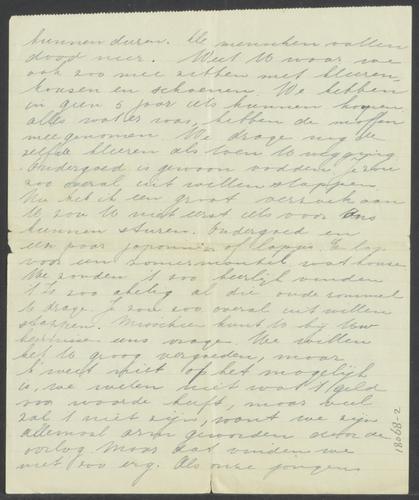 kunnen duren. De menschen vallen
dood neer. Weet U waar we
ook zoo mee zitten met kleeren,
kousen en schoenen. We hebben
in geen 5 jaar iets kunnen koopen
alles wat er was, hebben de moffen
meegenomen. We drage nog de
zelfde kleeren als toen U wegging
Ondergoed is gewoon vodden, je zou
zoo overal uit willen stappen.
Nu heb ik een groot verzoek aan
U zou U niet eerst iets voor ons
kunnen sturen. Ondergoed en
een paar japonnen of lapjes. En lap
voor een zomermantel wat kousen
We zouden 't zoo heerlijk vinden
't Is zoo akelig al die oude rommel
te drage. Je zou zoo overal uit willen
stappen. Misschien kunt U bij Uw
kennissen ons vrage. We willen
het U graag vergoeden, maar
'k weet niet of het mogelijk
is, we weten niet wat 't geld
voor waarde heeft, maar veel
zal 't niet zijn, want we zijn
allemaal arm geworden door de
oorlog. Maar dat vinden we
niet zoo erg. Als onze jongens
18068-2